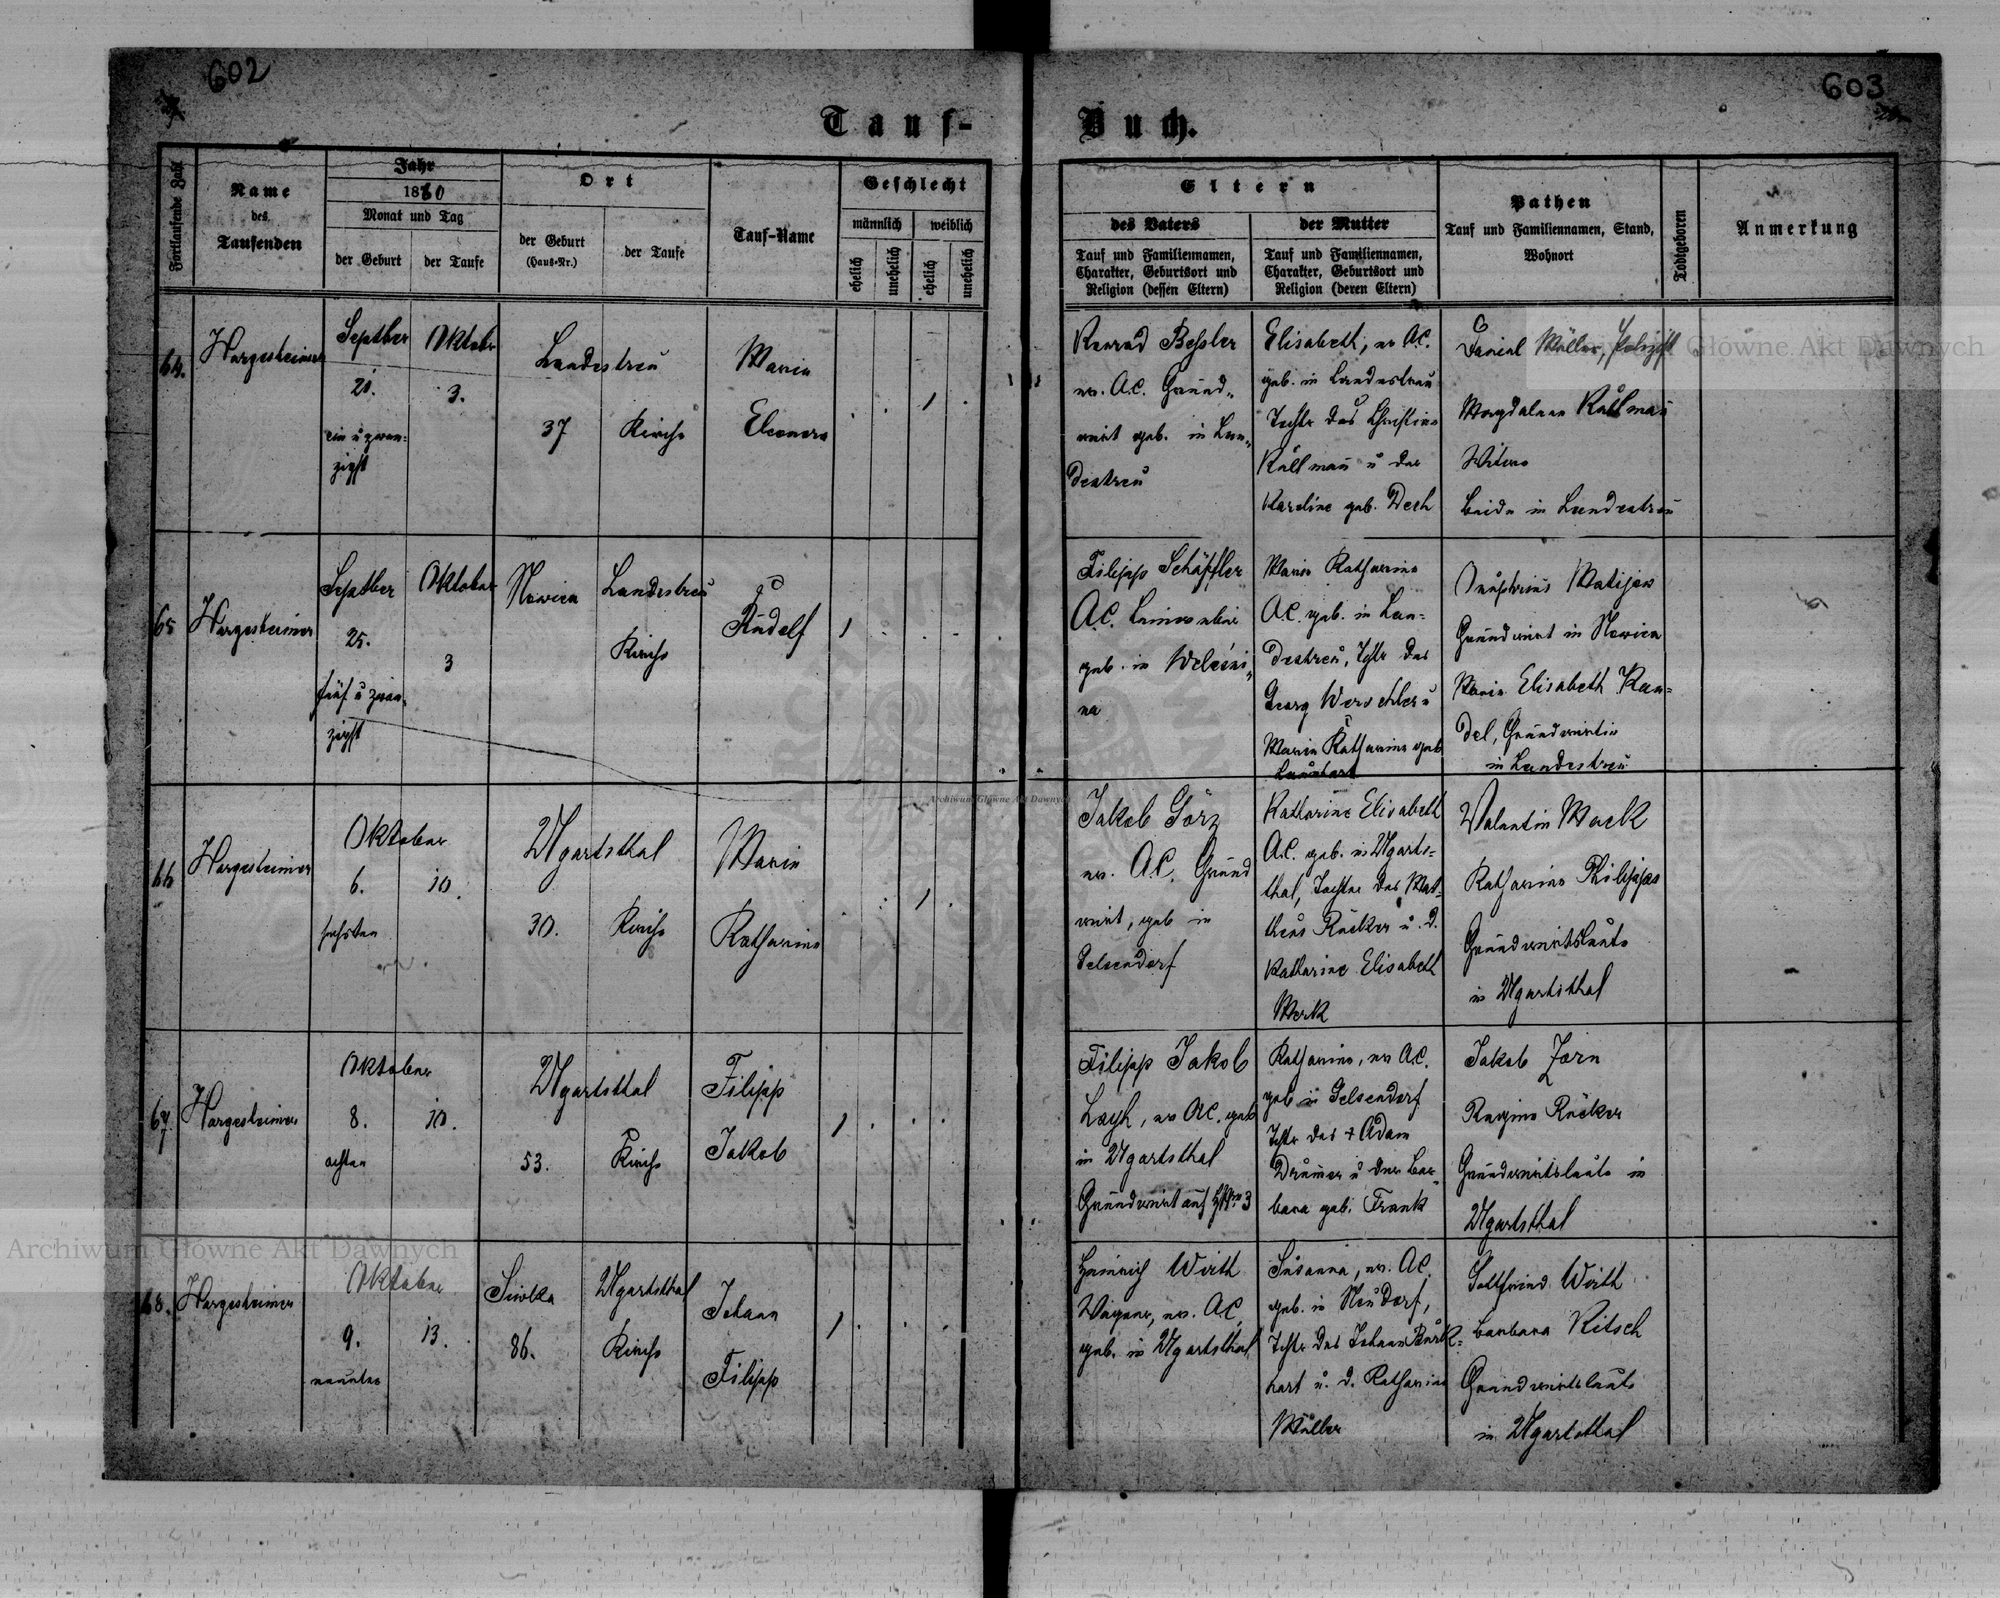 602
603
Tauf-
Buch.
Fortlaufende Zahl
Name
des
Taufenden
Jahr
1880
Monat und Tag
der Geburt
der Taufe
Ort
der Geburt
(Haus-Nr.)
der Taufe
Tauf-Name
Geschlecht
männlich
weiblich
ehelich
unehelich
ehelich
unehelich
Eltern
des Vaters
Tauf und Familiennamen,
Charakter, Geburtsort und
Religion (dessen Eltern)
der Mutter
Tauf und Familiennamen,
Charakter, Geburtsort und
Religion (deren Eltern)
Pathen
Tauf und Familiennamen, Stand,
Wohnort
Todtgeboren
Anmerkung
64.
Hargesheimer
Septber
21.
ein u zwan-
zigst
Oktober
3.
Landestreu
37
Kirche
Maria
Eleonora
Konrad Bessler
ev. A.C. Grund-
wirt geb. in Lan-
destreu
Elisabeth, ev A.C.
geb. in Landestreu
Tochter des Christian
Kallman u der
Karoline geb. Dech
Daniel Müller,
Magdalena Kallman
Witwe
beide in Landestreu
65
Hargesheimer
Septber
25.
fünf u zwan-
zigst
Oktober
3
Nowica
Landestreu
Kirche
Rudolf
Filipp Schäffler
A.C.
geb. in
na
Maria Katharina
A.C. geb. in Lan-
destreu, Tchtr des
Georg u
Maria Katharina geb
Matijow
Grundwirt in Nowica
Maria Elisabeth Kan-
del, Grundwirtin
in Landestreu
66
Hargesheimer
Oktober
6.
10.
sechsten
Ugartsthal
30.
Kirche
Maria
Katharina
Jakob Görz
ev. A.C. Grund
wirt, geb in
Gelsendorf
Katharina Elisabeth
A.C. geb. in Ugarts-
thal, Tochter des Mat-
theus Rücker u. d.
Katharine Elisabeth
Valentin Mock
Katharina Philipps
Grundwirtsleute
in Ugartsthal
67.
Hargesheimer
Oktober
8.
10.
achten
Ugartsthal
53.
Kirche
Filipp
Jakob
Filipp Jakob
Layh, ev A.C. geb
in Ugartsthal
Grundwirt auf
Katharina, ev A.C.
geb in Gelsendorf
Tchtr des + Adam
u der Bar-
bara geb. Frank
Jakob Zorn
Regina Rücker
Grundwirtsleute in
Ugartsthal
68.
Hargesheimer
Oktober
9.
13.
neunten
Siwka
86.
Ugartsthal
Kirche
Johann
Filipp
Heinrich Wirth
Wagner, ev. A.C.
geb. in Ugartsthal
Susanna, ev. A.C.
geb. in Neudorf,
Tchtr des Johann Burk-
hart u. d. Katharina
Müller
Gottfried Wirth
Barbara Kitsch
Grundwirtsleute
in Ugartsthal
Archiwum Główne Akt Dawnych
Główne Akt Dawnych
Archiwum Główne Akt Dawnych